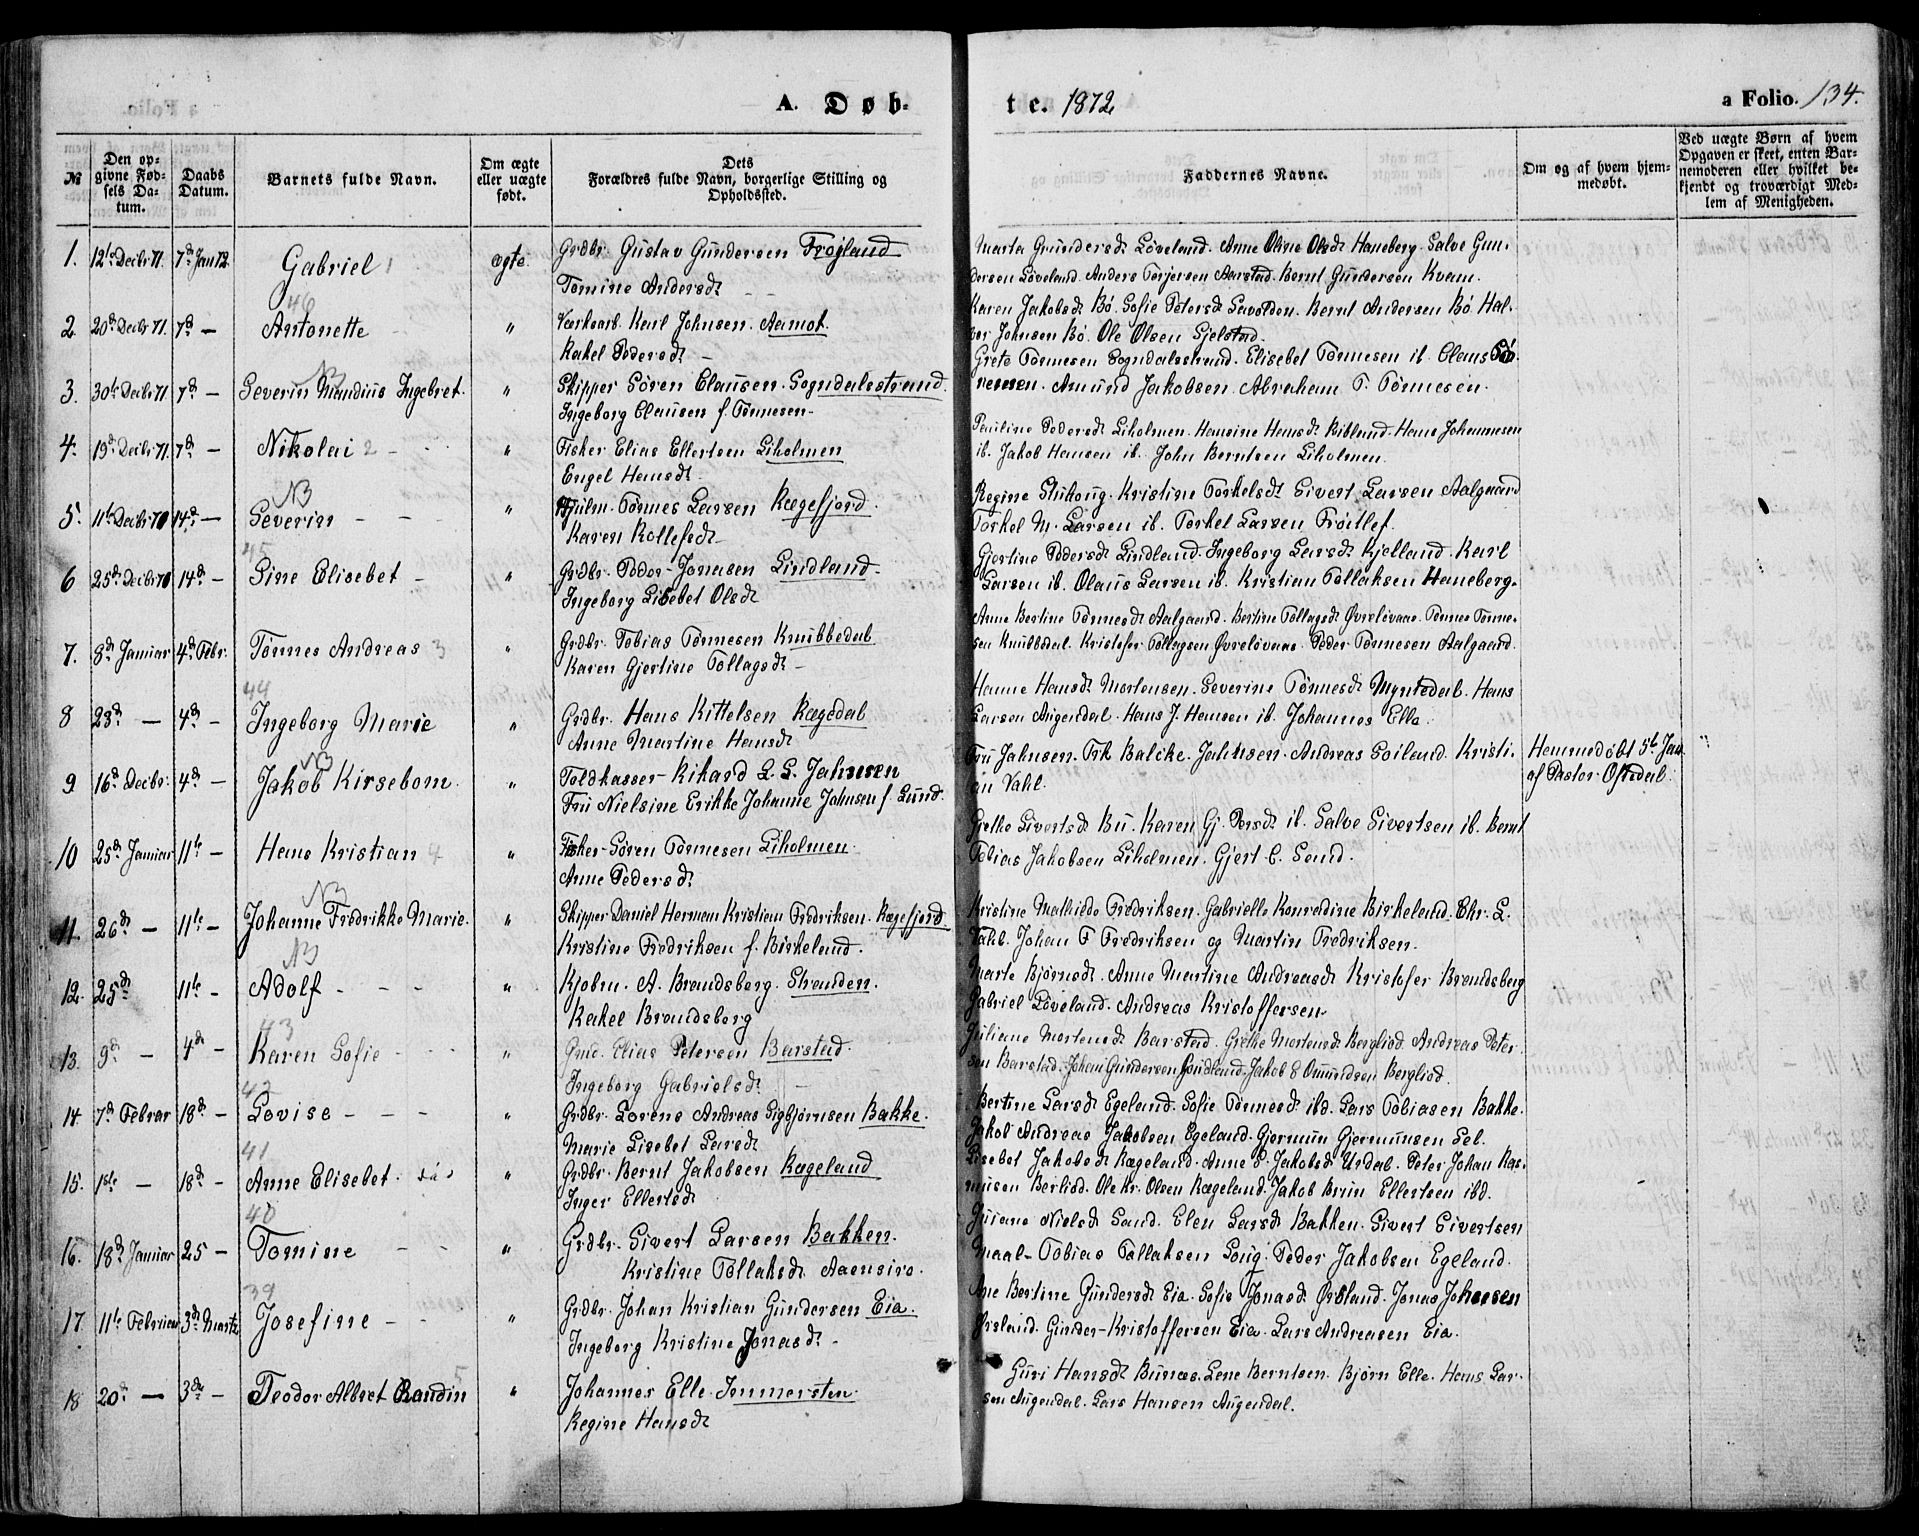 A. Døb-
te. 1872
a Folio. 134.
№
Den op-
givne Fød-
sels Da-
tum.
Daabs
Datum.
Barnets fulde Navn.
Om ægte
eller uægte
født.
Dets
Forældres fulde Navn, borgerlige Stilling og
Opholdssted.
Faddernes Navne.
Om og af hvem hjem-
medøbt.
Ved uægte Børn af hvem
Opgaven er skeet, enten Bar-
nemoderen eller hvilket be-
kjendt og troværdigt Med-
lem af Menigheden.
1. 12te Decbr 71. 7de Jan 72. Gabriel 1 ægte. Grdbr. Gustav Gundersen Frøjland
Tomine Andersdt
Marta Gundersdt Løveland. Anne Oline Olsdt Haneberg. Salve Gun-
dersen Løveland. Anders Torjersen Aarstad. Bernt Gundersen Kvam.
46
2. 20de Decbr 71. 7de — Antonette " Værksarb. Karl Johnsen. Aamot.
Rakel Pedersdt
Karen Jakobsdt Bø. Sofie Petersdt Savolden. Bernt Andersen Bø. Hal-
vor Johnsen Bø. Ole Olsen Gjelstad.
NB
3. 30te Decbr 71. 7de — Severin Mandius Ingebret. " Skipper Sören Clausen. Sogndalsstrand.
Ingeborg Clausen f. Tønnesen
Grete Tønnesen Sogndalsstrand. Elisebet Tønnesen ib. Claus Tön-
nesen. Amund Jakobsen. Abraham T. Tønnesen.
4. 19de Decbr 71. 7de — Nikolai 2 " Fisker Elias Ellertsen Liholmen
Engel Hansdt
Pauline Pedersdt Liholmen. Hansine Hansdt Kibland. Hans Johannesen
ib. Jakob Hansen ib. John Berntsen Liholmen.
NB
5. 11te Decbr 70 14de — Severin " Hjulm. Tönnes Larsen Rægefjord.
Karen Rollefsdt
Regine Stukoug. Kristine Torkelsdt Sivert Larsen Aalgaard
Torkel M. Larsen ib. Torkel Larsen Frøitlef.
45
6 25de Decbr 70 14de — Sine Elisebet " Grdbr. Peder Jonasen Lindland
Ingeborg Lisebet Olsdt
Gjertine Pedersdt Lindland. Ingeborg Larsdt Kjelland. Karl
Larsen ib. Olaus Larsen ib. Kristian Tollaksen Haneberg.
7. 8de Januar 4de Febr. Tönnes Andreas 3 " Grdbr. Tobias Tønnesen Knubbedal
Karen Gjertine Tollagsdt
Anne Bertine Tønnesdt Aalgaard. Bertine Tollagsdt Øvreløvaas. Tønnes Tønne-
sen Knubbedal. Kristofer Tollagsen Øvreløvaas. Peder Tønnesen Aalgaard.
44
8 23de — 4de — Ingeborg Marie " Grdbr. Hans Kittelsen Rægedal
Anne Martine Hansdt
Hanne Hansdt Mortensen. Severine Tønnesdt Myntedal. Hans
Larsen Augendal. Hans J. Hansen ib. Johannes Elle.
NB
9 16de Decbr. 4de — Jakob Kirsebom. " Toldkasser- Rikard L. S. Jahnsen
Fru Nielsine Erikke Johanne Jahnsen f. Lund.
Fru Jahnsen. Frk Balcke. Jahnsen. Andreas Soiland. Kristi-
an Vahl.
Hemmedøbt 5te Jan
af Pastor Oftedal.
10 25de Januar 11te — Hans Kristian 4 " Fisker- Sören Tønnesen Liholmen.
Anne Pedersdt
Gjethe Sivertsdt Bu. Karen Gj. Persdt ib. Salve Sivertsen ib. Bernt
Tobias Jakobsen Liholmen. Gjert C. Sand.
NB
11. 26de — 11te — Johanne Fredrikke Marie. " Skipper Daniel Herman Kristian Fredriksen. Rægefjord
Kristine Fredriksen f. Birkeland.
Kristine Mathilde Fredriksen. Gabrielle Konradine Birkeland. Chr. L.
Vahl. Johan F Fredriksen og Martin Fredriksen.
NB
12. 25de 11te — Adolf " Kjøbm. A. Brandsberg. Stranden.
Rakel Brandsberg
Marte Bjørnsdt. Anne Martine Andreasdt Kristofer Brandsberg
Gabriel Løveland. Andreas Kristoffersen
43
13. 9de — 4de — Karen Sofie " Gmd. Elias Petersen Barstad.
Ingeborg Gabrielsdt
Juliane Mortensdt Barstad. Grethe Mortensdt Bergliod. Andreas Peter-
sen Barstad. Johan Gundersen Lindland. Jakob E Omundsen Bergliod.
42
14. 7de Februar 18de — Lovise " Grdbr. Lorens Andreas Sigbjørnsen Bakke.
Marie Lisebet Larsdt
Bertine Larsdt Egeland. Sofie Tønnesdt ibd. Lars Tobiasen Bakke.
Jakob Andreas Jakobsen Egeland. Gjermun Gjermunsen Sel.
41
15. 1ste — 18de — Anne Elisebet. " Grdbr. Bernt Jakobsen Rægeland
Inger Ellertsdt
Lisebet Jakobsdt Rægeland. Anne E. Jakobsdt Urdal. Peter Johan Ras-
musen Berliod. Ole Kr. Olsen Rægeland. Jakob Brun Ellertsen ibd.
40
16. 18de Januar 25 — Tomine " Grdbr. Sivert Larsen Bakken.
Kristine Tollaksdt Aaensire.
Juiane Nielsdt Sand. Elen Larsdt Bakken. Sivert Sivertsen
Maal- Tobias Tollaksen Loug. Peder Jakobsen Egeland.
39
17. 11te Februar 3de Marts Josefine " Grdbr. Johan Kristian Gundersen Eia.
Ingeborg Kristine Jonasdt
Ane Bertine Gundersdt Eia. Sofie Jonasdt Ørsland. Jonas Johnsen
Ørsland. Gunder Kristoffersen Eia. Lars Andreasen Eia.
18 20de — 3de — Teodor Albret Randin 5 " Johannes Elle. Immersten.
Regine Hansdt
Guri Hansdt Bunæs. Lene Berntsen. Bjørn Elle. Hans Lar-
sen Augendal. Lars Hansen Augendal.